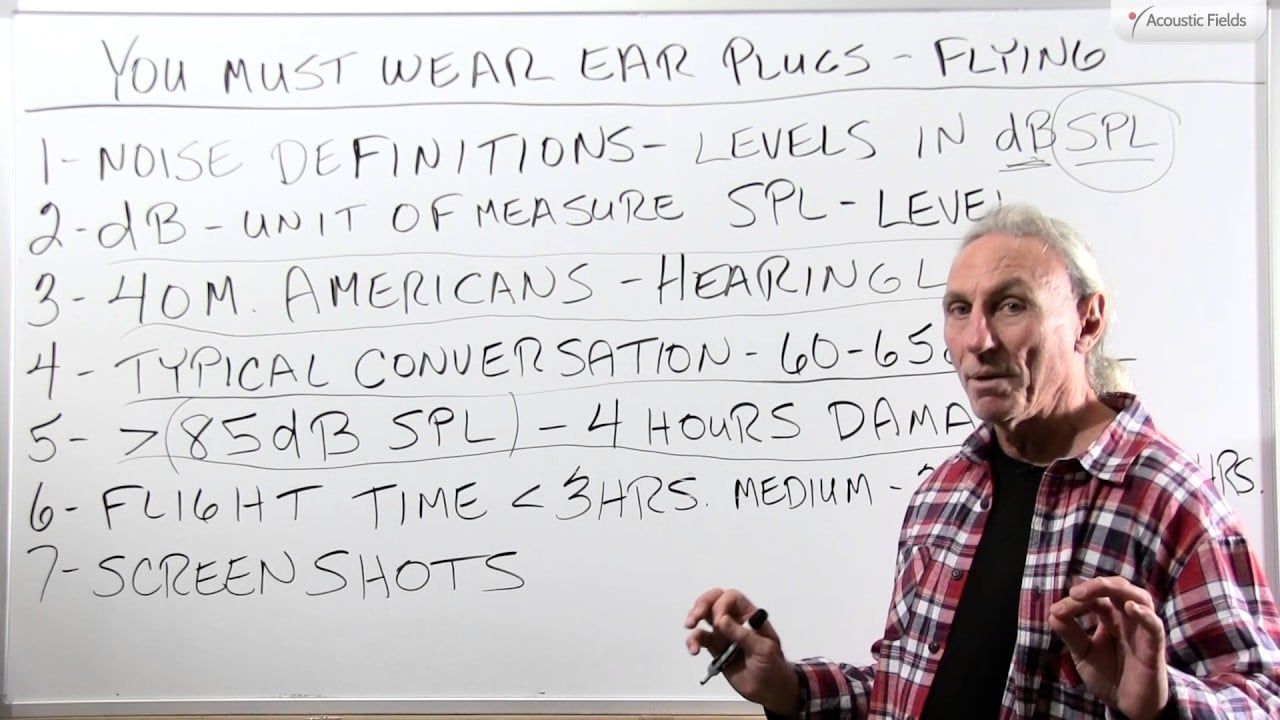 Acoustic Fields
YOU MUST WEAR EAR PLUGS - FLYING
1- NOISE DEFINITIONS- LEVELS IN dB SPL
2- dB - UNIT OF MEASURE SPL - LEVEL
3- 40M. AMERICANS - HEARING
4- TYPICAL CONVERSATION - 60-65
5- >(85dB SPL) - 4 HOURS
6- FLIGHT TIME < 3HRS. MEDIUM - HRS.
7- SCREENSHOTS